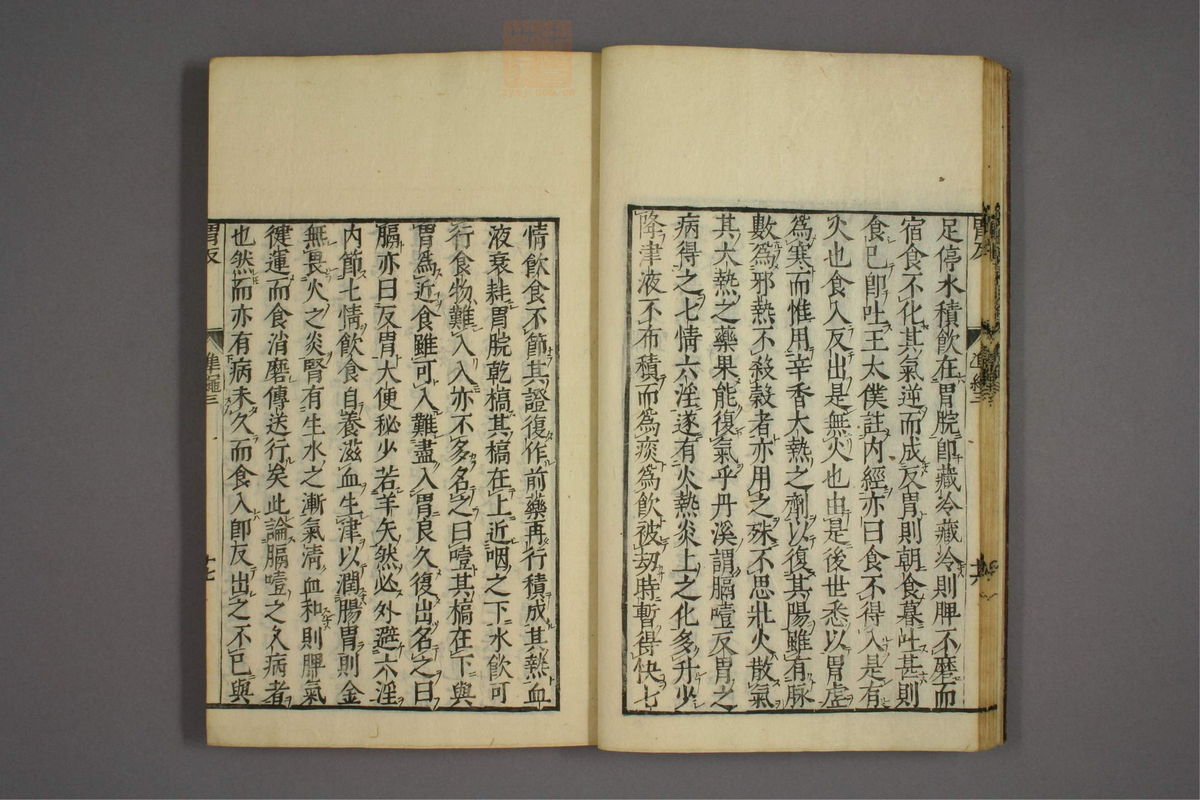 足停水積飲在胃脘即藏冷藏冷則脾不磨而
宿食不化其氣逆而成反胃則朝食暮吐甚則
食已即吐王太僕註內經亦曰食不得入是有
火也食入反出是無火也由是後世悉以胃虛
為寒而惟用辛香大熱之劑以復其陽雖有脉
數為邪熱不殺穀者亦用之殊不思壯火散氣
其大熱之藥果能復氣乎丹溪謂膈噎反胃之
病得之七情六淫遂有火熱炎上之化多升少
降津液不布積而為痰為飲被刧時暫得快七
情飲食不節其證復作前藥再行積成其熱血
液衰耗胃脘乾槁其槁在上近咽之下水飲可
行食物難入入亦不多名之曰噎其槁在下與
胃為近食雖可入難盡入胃良久復出名之曰
膈亦曰反胃大便秘少若羊矢然必外避六淫
內節七情飲食自養滋血生津以潤腸胃則金
無畏火之炎腎有生水之漸氣清血和則脾氣
健運而食消磨傳送行矣此論膈噎之久病者
也然而亦有病未久而食入即反出之不已與
胃反
準繩三
十七